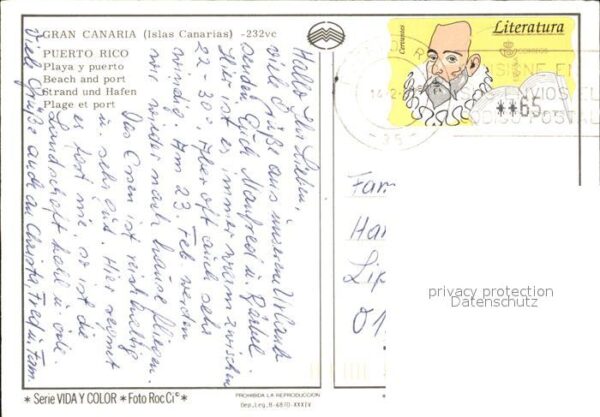 GRAN CANARIA (Islas Canarias) -232vc
PUERTO RICO
Playa y puerto
Beach and port
Strand und Hafen
Plage et port
Hallo Ihr Lieben,
viele Grüße aus unserem Urlaub
senden Euch Manfred u. Bärbel.
Hier ist es immer warm zwischen
22 - 30°, aber oft auch sehr
windig. Am 23. Feb werden
wir wieder nach hause fliegen.
Das Essen ist reichhaltig
u. sehr gut. Hier regnet
es fast nie, so ist die
Landschaft kahl u. öde.
Viele Grüße auch an Christa, Fred u. Fam.
Cervantes
Literatura
CORREOS
**65
14-2-
-35-
ENVIOS
CODIGO POSTAL
Fam
Han
Lip
01
privacy protection
Datenschutz
* Serie VIDA Y COLOR * Foto Roc Ci® *
PROHIBIDA LA REPRODUCCION
Dep. Leg. B-6870-XXXIV